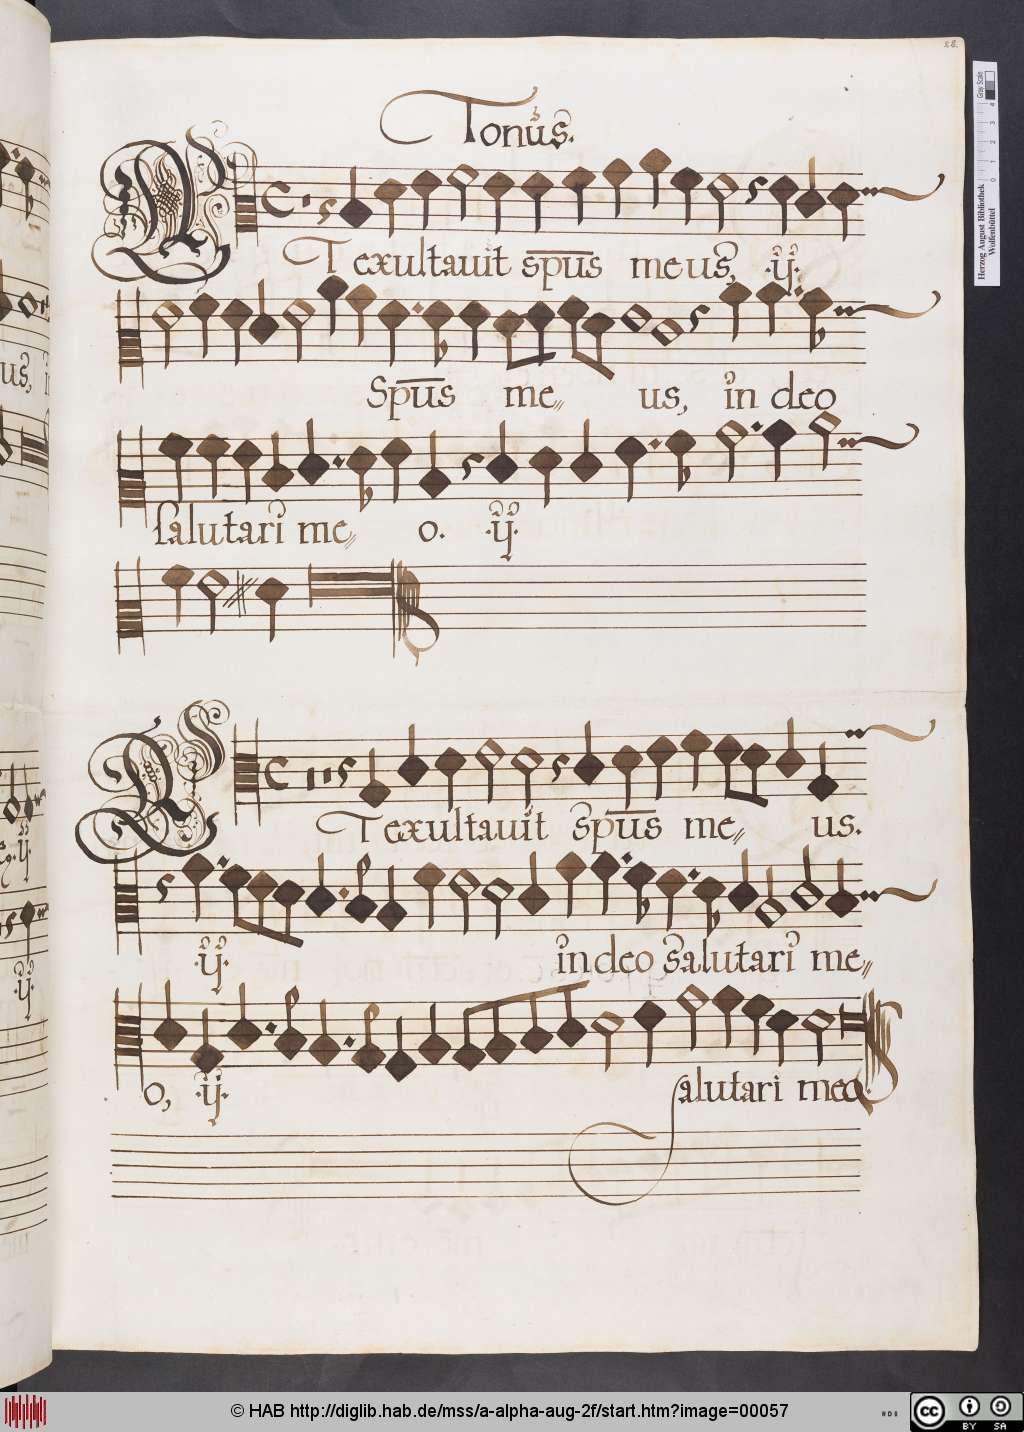 28.
Tonus.
ET exultauit spūs meus, ·ij·
Spūs me〃 us, in deo
salutari me〃 o. ·ij·
ET exultauit spūs me〃 us.
·ij· in deo salutari me〃
o, ·ij· salutari meo.
Herzog August Bibliothek
Wolfenbüttel
© HAB http://diglib.hab.de/mss/a-alpha-aug-2f/start.htm?image=00057
cc BY SA